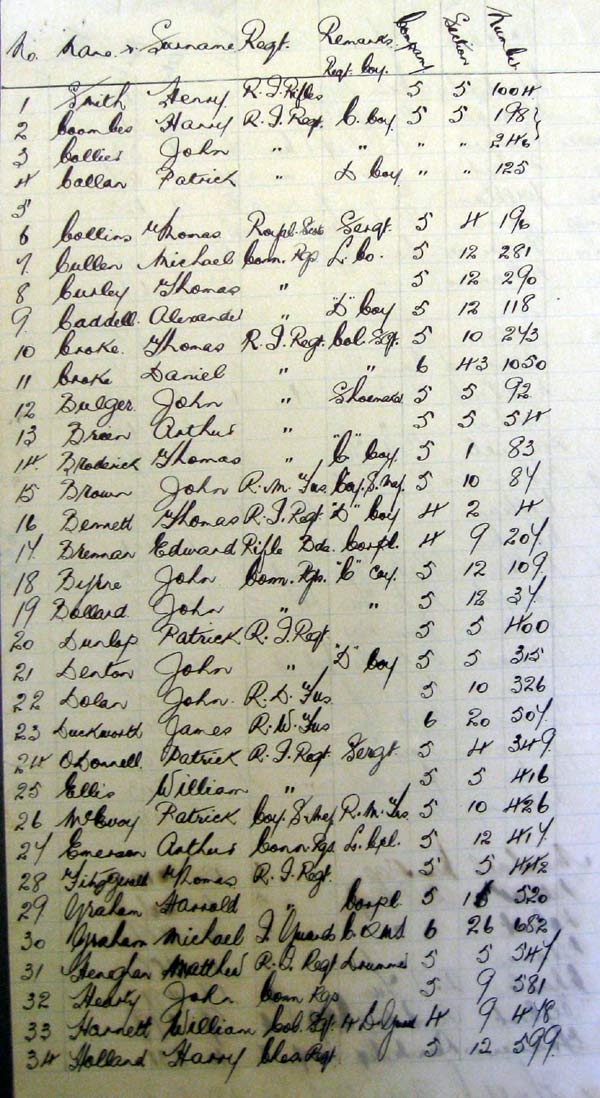 No. Name & Surname Regt. Remarks Company Section Number
Regt. Coy.
1 Smith Henry R. I. Rifles 5 5 1004
2 Coombes Harry R. I. Regt. C. Coy 5 5 198
3 Collier John " " " " 246
4 Callan Patrick " D Coy " " 125
5
6 Collins Thomas Royal Scots Sergt. 5 4 196
7 Cullen Michael Conn. Rgs L. Co. 5 12 281
8 Curley Thomas " 5 12 290
9 Caddell Alexander " "D" Coy 5 12 118
10 Croke Thomas R. I. Regt. Col. Sgt. 5 10 243
11 Croke Daniel " " 6 43 1050
12 Bulger John " Shoemaker 5 5 92
13 Breen Arthur " 5 5 54
14 Broderick Thomas " "C" Coy. 5 1 83
15 Brown John R. M. Fus Coy. S. Mej. 5 10 87
16 Bennett Thomas R. I. Regt "D" Coy 4 2 4
17 Brennan Edward Rifle Bde. Corpl. 4 9 207
18 Byrne John Conn. Rgs. "C" Coy. 5 12 109
19 Bollard John " " 5 12 37
20 Dunlop Patrick R. I. Regt 5 5 400
21 Denton John " "D" Coy 5 5 315
22 Dolan John R. D. Fus. 5 10 326
23 Duckworth James R. W. Fus 6 20 507
24 O'Donnell Patrick R. I. Regt Sergt. 5 4 349
25 Ellis William " 5 5 416
26 McEvoy Patrick Coy. S. Mej R. M. Fus. 5 10 426
27 Emerson Arthur Conn. Rgs L. Cpl. 5 12 417
28 Fitzgerald Thomas R. I. Regt. 5 5 442
29 Graham Harrold " Corpl. 5 520
30 Graham Michael I. Guards C. Q. M. S 6 26 682
31 Heneghan Matthew R. I. Regt Drummer 5 5 547
32 Hearty John Conn Rgs 5 9 581
33 Harnett William Col. Sgt. 4 D. Gds 4 9 478
34 Holland Harry Ches. Rgt. 5 12 599